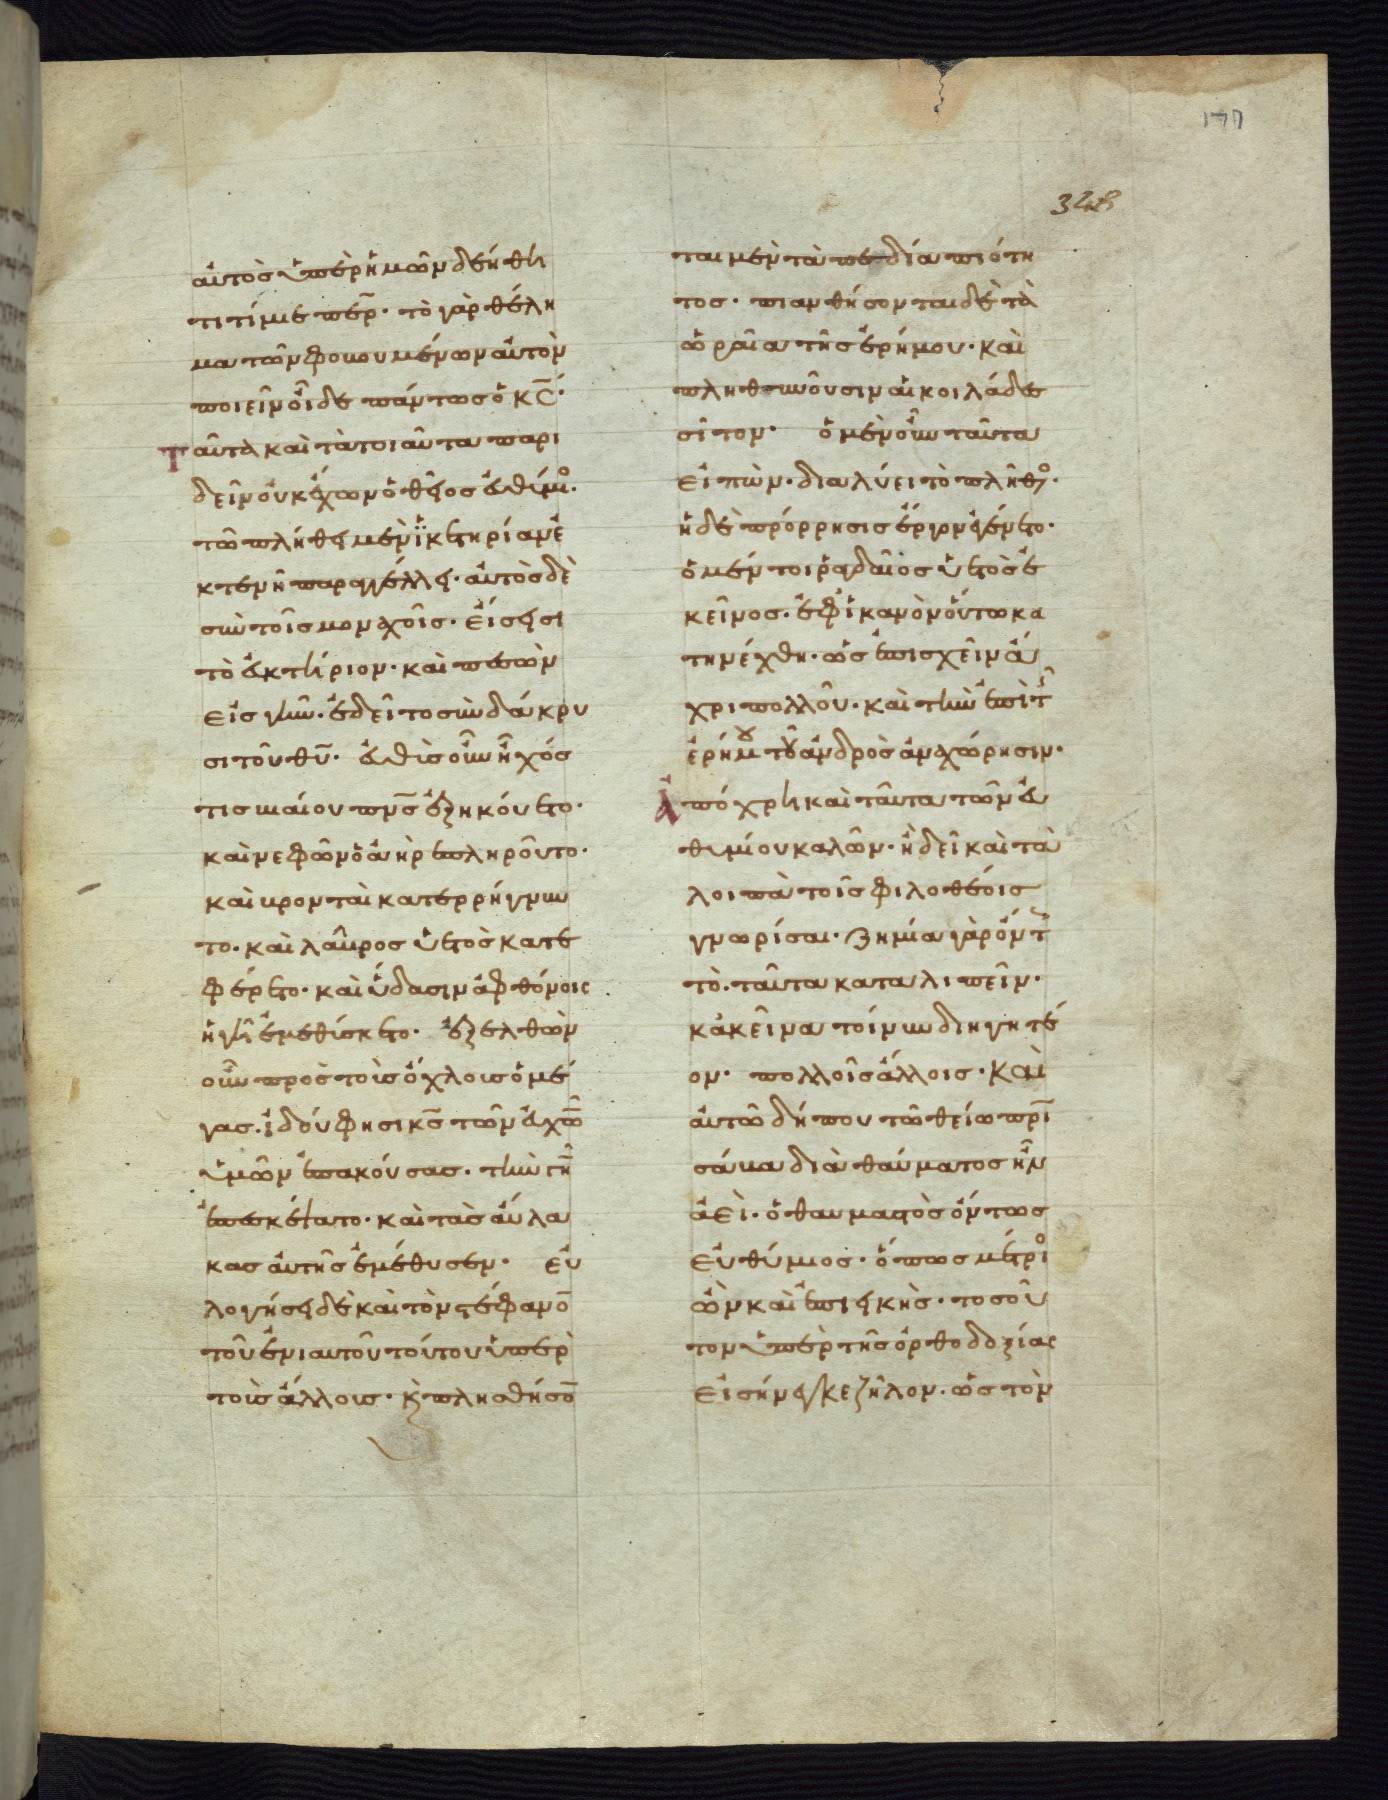 177
328
αὐτὸς ὑπὲρ ἡμῶν δεήθητι
τι τίμιε περ̅· τὸ γὰρ θέλη
μα τῶν φοβουμένων αὐτὸν
ποιεῖν οἶδε πάντως ὁ κ̅ς̅·
Ταῦτα καὶ τὰ τοιαῦτα παρι
δεῖν οὐκ ἔχων ὁ θεῖος εὐθύμιο·
τῶ πλήθει μὲν ἱκετηρίαν ἐ
κτενῆ παραγγέλλει· αὐτὸς δὲ
σὺν τοῖς μοναχοῖς· εἴσεισι
τὸ εὐκτήριον· καὶ πεσὼν
εἰς γῆν· ἐδεῖτο σὺν δάκρυ
σι τοῦ θ̅υ̅· εὐθὺς οὖν ἦχός
τις βιαίου πν̅ς̅ ἐξηκούετο·
καὶ νεφῶν ὁ ἀὴρ ἐπληροῦτο·
καὶ βρονταὶ κατερρήγνυν
το· καὶ λάβρος ὑετὸς κατε
φέρετο· καὶ ὕδασιν ἀφθόνοις
ἡ γῆ ἐμεθύσκετο· ἐξελθὼν
οὖν πρὸς τοὺς ὄχλους ὁ μέ
γας· ἰδού φησι κ̅ς̅ τῶν εὐχῶν
ὑμῶν ἐπακούσας· τὴν γῆν
ἐπεσκέψατο· καὶ τὰς αὔλα
κας αὐτῆς ἐμέθυσεν· εὐ
λογήσει δὲ καὶ τὸν στέφανον
τοῦ ἐνιαυτοῦ τούτου ὑπὲρ
τοὺς ἄλλους· κ̀ πλησθήσον
ται μὲν τὰ πεδία πιότη
τος· πιανθήσονται δὲ τὰ
ὡραῖα τῆς ἐρήμου· καὶ
πληθυνοῦσιν αἱ κοιλάδες
σῖτον· ὁ μὲν οὖν ταῦτα
εἰπὼν· διαλύει τὸ πλῆθος·
ἡ δὲ πρόρρησις ἔργον ἐγένετο·
ὁ μέντοι ῥαγδαῖος ὑετὸς ἐ
κεῖνος· ἐφ' ἱκανὸν οὕτω κα
τηνέχθη· ὡς ἐπισχεῖν ἄ
χρι πολλοῦ· καὶ τὴν ἐπὶ τὴν
ἔρημον τοῦ ἀνδρὸς ἀναχώρησιν·
Ἀπόχρη καὶ ταῦτα τῶν εὐ
θυμίου καλῶν· ἤδει καὶ τὰ
λοιπὰ τοῖς φιλοθέοις
γνωρίσαι· ζημία γὰρ ὄντως
τὸ· ταῦτα καταλιπεῖν·
κἀκεῖνα τοίνυν διηγητέ
ον· πολλοῖς ἄλλοις· καὶ
αὐτῶ δήπου τῶ θείω πρ̅ι̅
σάβα διὰ θαύματος ἦν
ἀεὶ· ὁ θαυμαστὸς ὄντως
εὐθύμιος· ὅπως μέτριος
ὢν καὶ ἐπιεικὴς· τοσοῦ
τον ὑπὲρ τῆς ὀρθοδοξίας
εἰσήνεγκε ζῆλον· ὡς τὸν